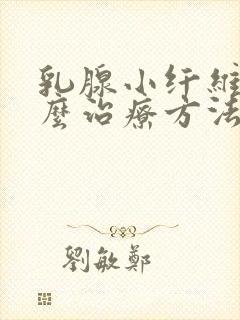 乳腺小纤维
麼治療方法
劉敏鄭